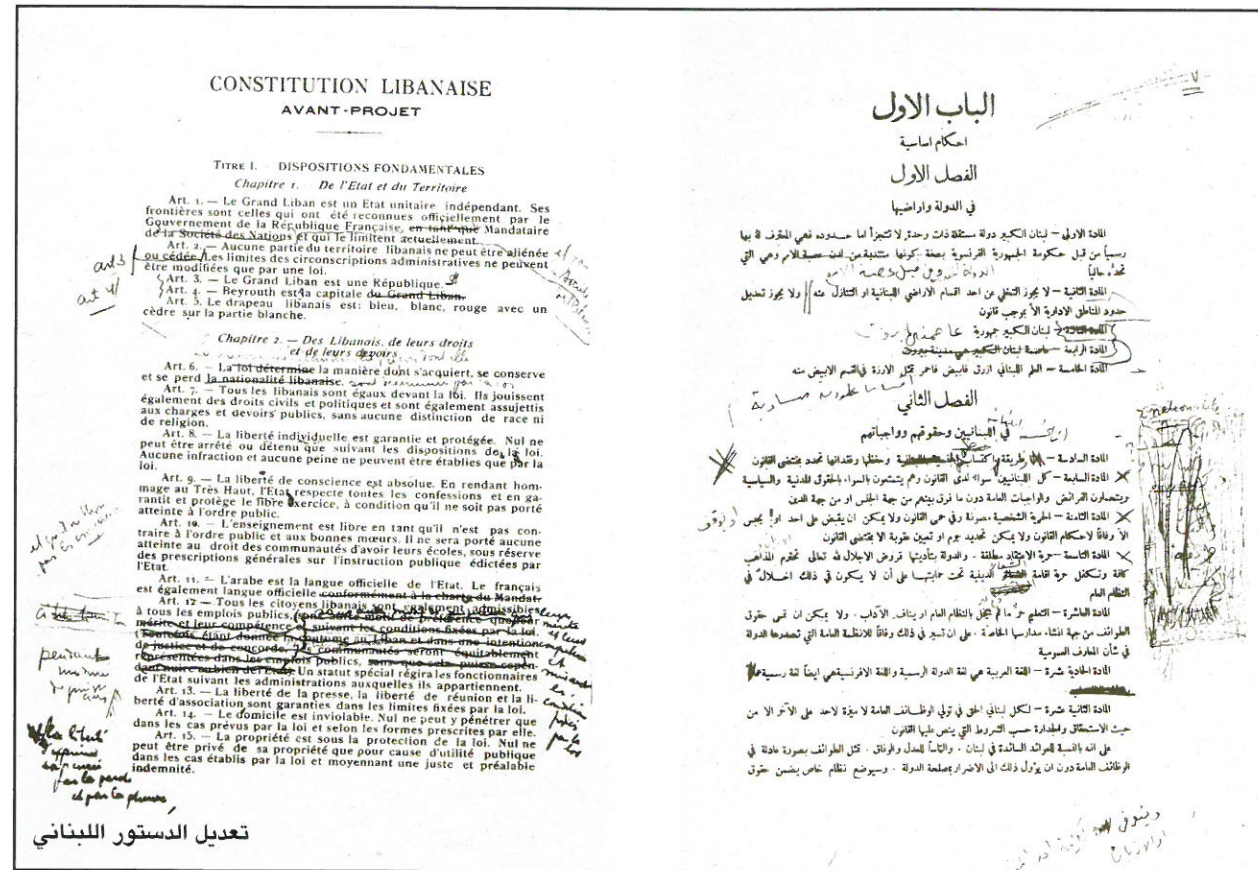 CONSTITUTION LIBANAISE
AVANT-PROJET
TITRE I. - DISPOSITIONS FONDAMENTALES
Chapitre 1. - De l'Etat et du Territoire
Art. 1. — Le Grand Liban est un Etat unitaire indépendant. Ses
frontières sont celles qui ont été reconnues officiellement par le
Gouvernement de la République Française, en tant que Mandataire
de la Société des Nations et qui le limitent actuellement.
Art. 2. — Aucune partie du territoire libanais ne peut être aliénée
ou cédée. Les limites des circonscriptions administratives ne peuvent
être modifiées que par une loi.
art 3
Art. 3. — Le Grand Liban est une République.
art 4
Art. 4. — Beyrouth est la capitale du Grand Liban.
Art. 5. Le drapeau libanais est: bleu, blanc, rouge avec un
cèdre sur la partie blanche.
Chapitre 2. — Des Libanais, de leurs droits
et de leurs devoirs
Art. 6. — La loi détermine la manière dont s'acquiert, se conserve
et se perd la nationalité libanaise.
Art. 7. — Tous les libanais sont égaux devant la loi. Ils jouissent
également des droits civils et politiques et sont également assujettis
aux charges et devoirs publics, sans aucune distinction de race ni
de religion.
Art. 8. — La liberté individuelle est garantie et protégée. Nul ne
peut être arrêté ou détenu que suivant les dispositions de la loi.
Aucune infraction et aucune peine ne peuvent être établies que par la
loi.
Art. 9. — La liberté de conscience est absolue. En rendant hom-
mage au Très Haut, l'Etat respecte toutes les confessions et en ga-
rantit et protège le libre exercice, à condition qu'il ne soit pas porté
atteinte à l'ordre public.
Art. 10. — L'enseignement est libre en tant qu'il n'est pas con-
traire à l'ordre public et aux bonnes mœurs. Il ne sera porté aucune
atteinte au droit des communautés d'avoir leurs écoles, sous réserve
des prescriptions générales sur l'instruction publique édictées par
l'Etat.
Art. 11. — L'arabe est la langue officielle de l'Etat. Le français
est également langue officielle conformément à la charte du Mandat.
Art. 12 — Tous les citoyens libanais sont également admissibles
à tous les emplois publics, sans autre motif de préférence que leur
mérite et leur compétence et suivant les conditions fixées par la loi.
Toutefois, étant donnée la coutume au Liban et dans une intention
de justice et de concorde, les communautés seront équitablement
représentées dans les emplois publics, sans que cela puisse cepen-
dant nuire au bien de l'Etat. Un statut spécial régira les fonctionnaires
de l'Etat suivant les administrations auxquelles ils appartiennent.
Art. 13. — La liberté de la presse, la liberté de réunion et la li-
berté d'association sont garanties dans les limites fixées par la loi.
Art. 14. — Le domicile est inviolable. Nul ne peut y pénétrer que
dans les cas prévus par la loi et selon les formes prescrites par elle.
Art. 15. — La propriété est sous la protection de la loi. Nul ne
peut être privé de sa propriété que pour cause d'utilité publique
dans les cas établis par la loi et moyennant une juste et préalable
indemnité.
تعديل الدستور اللبناني
الباب الاول
احكام اساسية
الفصل الاول
في الدولة واراضيها
المادة الاولى – لبنان الكبير دولة مستقلة ذات وحدة لا تتجزأ اما حدوده فهي المعترف له بها
رسمياً من قبل حكومة الجمهورية الفرنسوية بصفة كونها منتدبة من لدن عصبة الامم وهي التي
تحده حالياً
المادة الثانية – لا يجوز التخلي عن احد اقسام الاراضي اللبنانية او التنازل عنه ولا يجوز تعديل
حدود المناطق الادارية الا بموجب قانون
المادة الثالثة – لبنان الكبير جمهورية
المادة الرابعة – عاصمة لبنان الكبير هي مدينة بيروت
المادة الخامسة – العلم اللبناني ازرق فابيض فاحمر تمثل الارزة في القسم الابيض منه
الفصل الثاني
في اللبنانيين وحقوقهم وواجباتهم
المادة السادسة – وحفظها وفقدانها تحدد بمقتضى القانون
المادة السابعة – كل اللبنانيين سواء لدى القانون وهم يتمتعون بالسواء بالحقوق المدنية والسياسية
ويتحملون الفرائض والواجبات العامة دون ما فرق بينهم من جهة الجنس او من جهة الدين
المادة الثامنة – الحرية الشخصية مصونة وفي حمى القانون ولا يمكن ان يقبض على احد او يحبس
الا وفاقاً لاحكام القانون ولا يمكن تحديد جرم او تعيين عقوبة الا بمقتضى القانون
المادة التاسعة – حرية الاعتقاد مطلقة . والدولة بتأديتها فروض الاجلال لله تعالى تحترم المذاهب
كافة وتكفل حرية اقامة الشعائر الدينية تحت حمايتها على أن لا يكون في ذلك اخلال في
النظام العام
المادة العاشرة – التعليم حر ما لم يخل بالنظام العام او ينافِ الآداب . ولا يمكن ان تمس حقوق
الطوائف من جهة انشاء مدارسها الخاصة . على ان تسير في ذلك وفاقاً للانظمة العامة التي تصدرها الدولة
في شأن المعارف العمومية
المادة الحادية عشرة – اللغة العربية هي لغة الدولة الرسمية واللغة الافرنسية هي ايضاً لغة رسمية
المادة الثانية عشرة – لكل لبناني الحق في تولي الوظائف العامة لا ميزة لاحد على الآخر الا من
حيث الاستحقاق والجدارة حسب الشروط التي ينص عليها القانون
على انه بالنسبة للعوائد السائدة في لبنان . والتماساً للعدل والوفاق . تمثل الطوائف بصورة عادلة في
الوظائف العامة دون ان يؤول ذلك الى الاضرار بمصلحة الدولة . وسيوضع نظام خاص يضمن حقوق